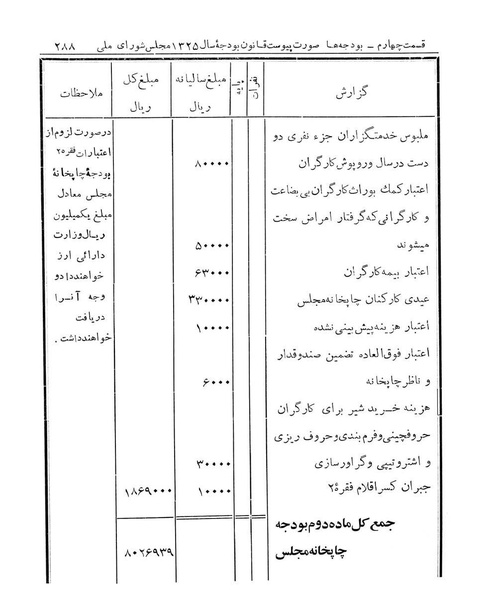 قسمت چهارم ــ بودجه‌ها صورت پیوست قانون بودجهٔ سال ۱۳۲۵ مجلس شورای ملی ۲۸۸
گزارش نفرات پایه مبلغ سالیانه ریال مبلغ کل ریال ملاحظات
ملبوس خدمتگزاران جزء نفری دو
دست در سال و روپوش کارگران ۸۰۰۰۰
اعتبار کمک بوراث کارگران بی‌بضاعت
و کارگرانی که گرفتار امراض سخت
میشوند ۵۰۰۰۰
اعتبار بیمه کارگران ۶۳۰۰۰
عیدی کارکنان چاپخانه مجلس ۳۳۰۰۰۰
اعتبار هزینه پیش بینی نشده ۱۰۰۰۰
اعتبار فوق‌العاده تضمین صندوقدار
و ناظر چاپخانه ۶۰۰۰
هزینه خرید شیر برای کارگران
حروفچینی و فرم بندی و حروف ریزی
و اشتروتیپی و گراورسازی ۳۰۰۰۰
جبران کسر اقلام فقرهٔ ۲ ۱۰۰۰۰ ۱۸۶۹۰۰۰
جمع کل ماده دوم بودجه
چاپخانه مجلس ۸۰۲۶۹۳۹
در صورت لزوم از
اعتبارات فقره ۲
بودجهٔ چاپخانهٔ
مجلس معادل
مبلغ یکمیلیون
ریال وزارت
دارائی ارز
خواهند داد و
وجه آنرا
دریافت
خواهند داشت.